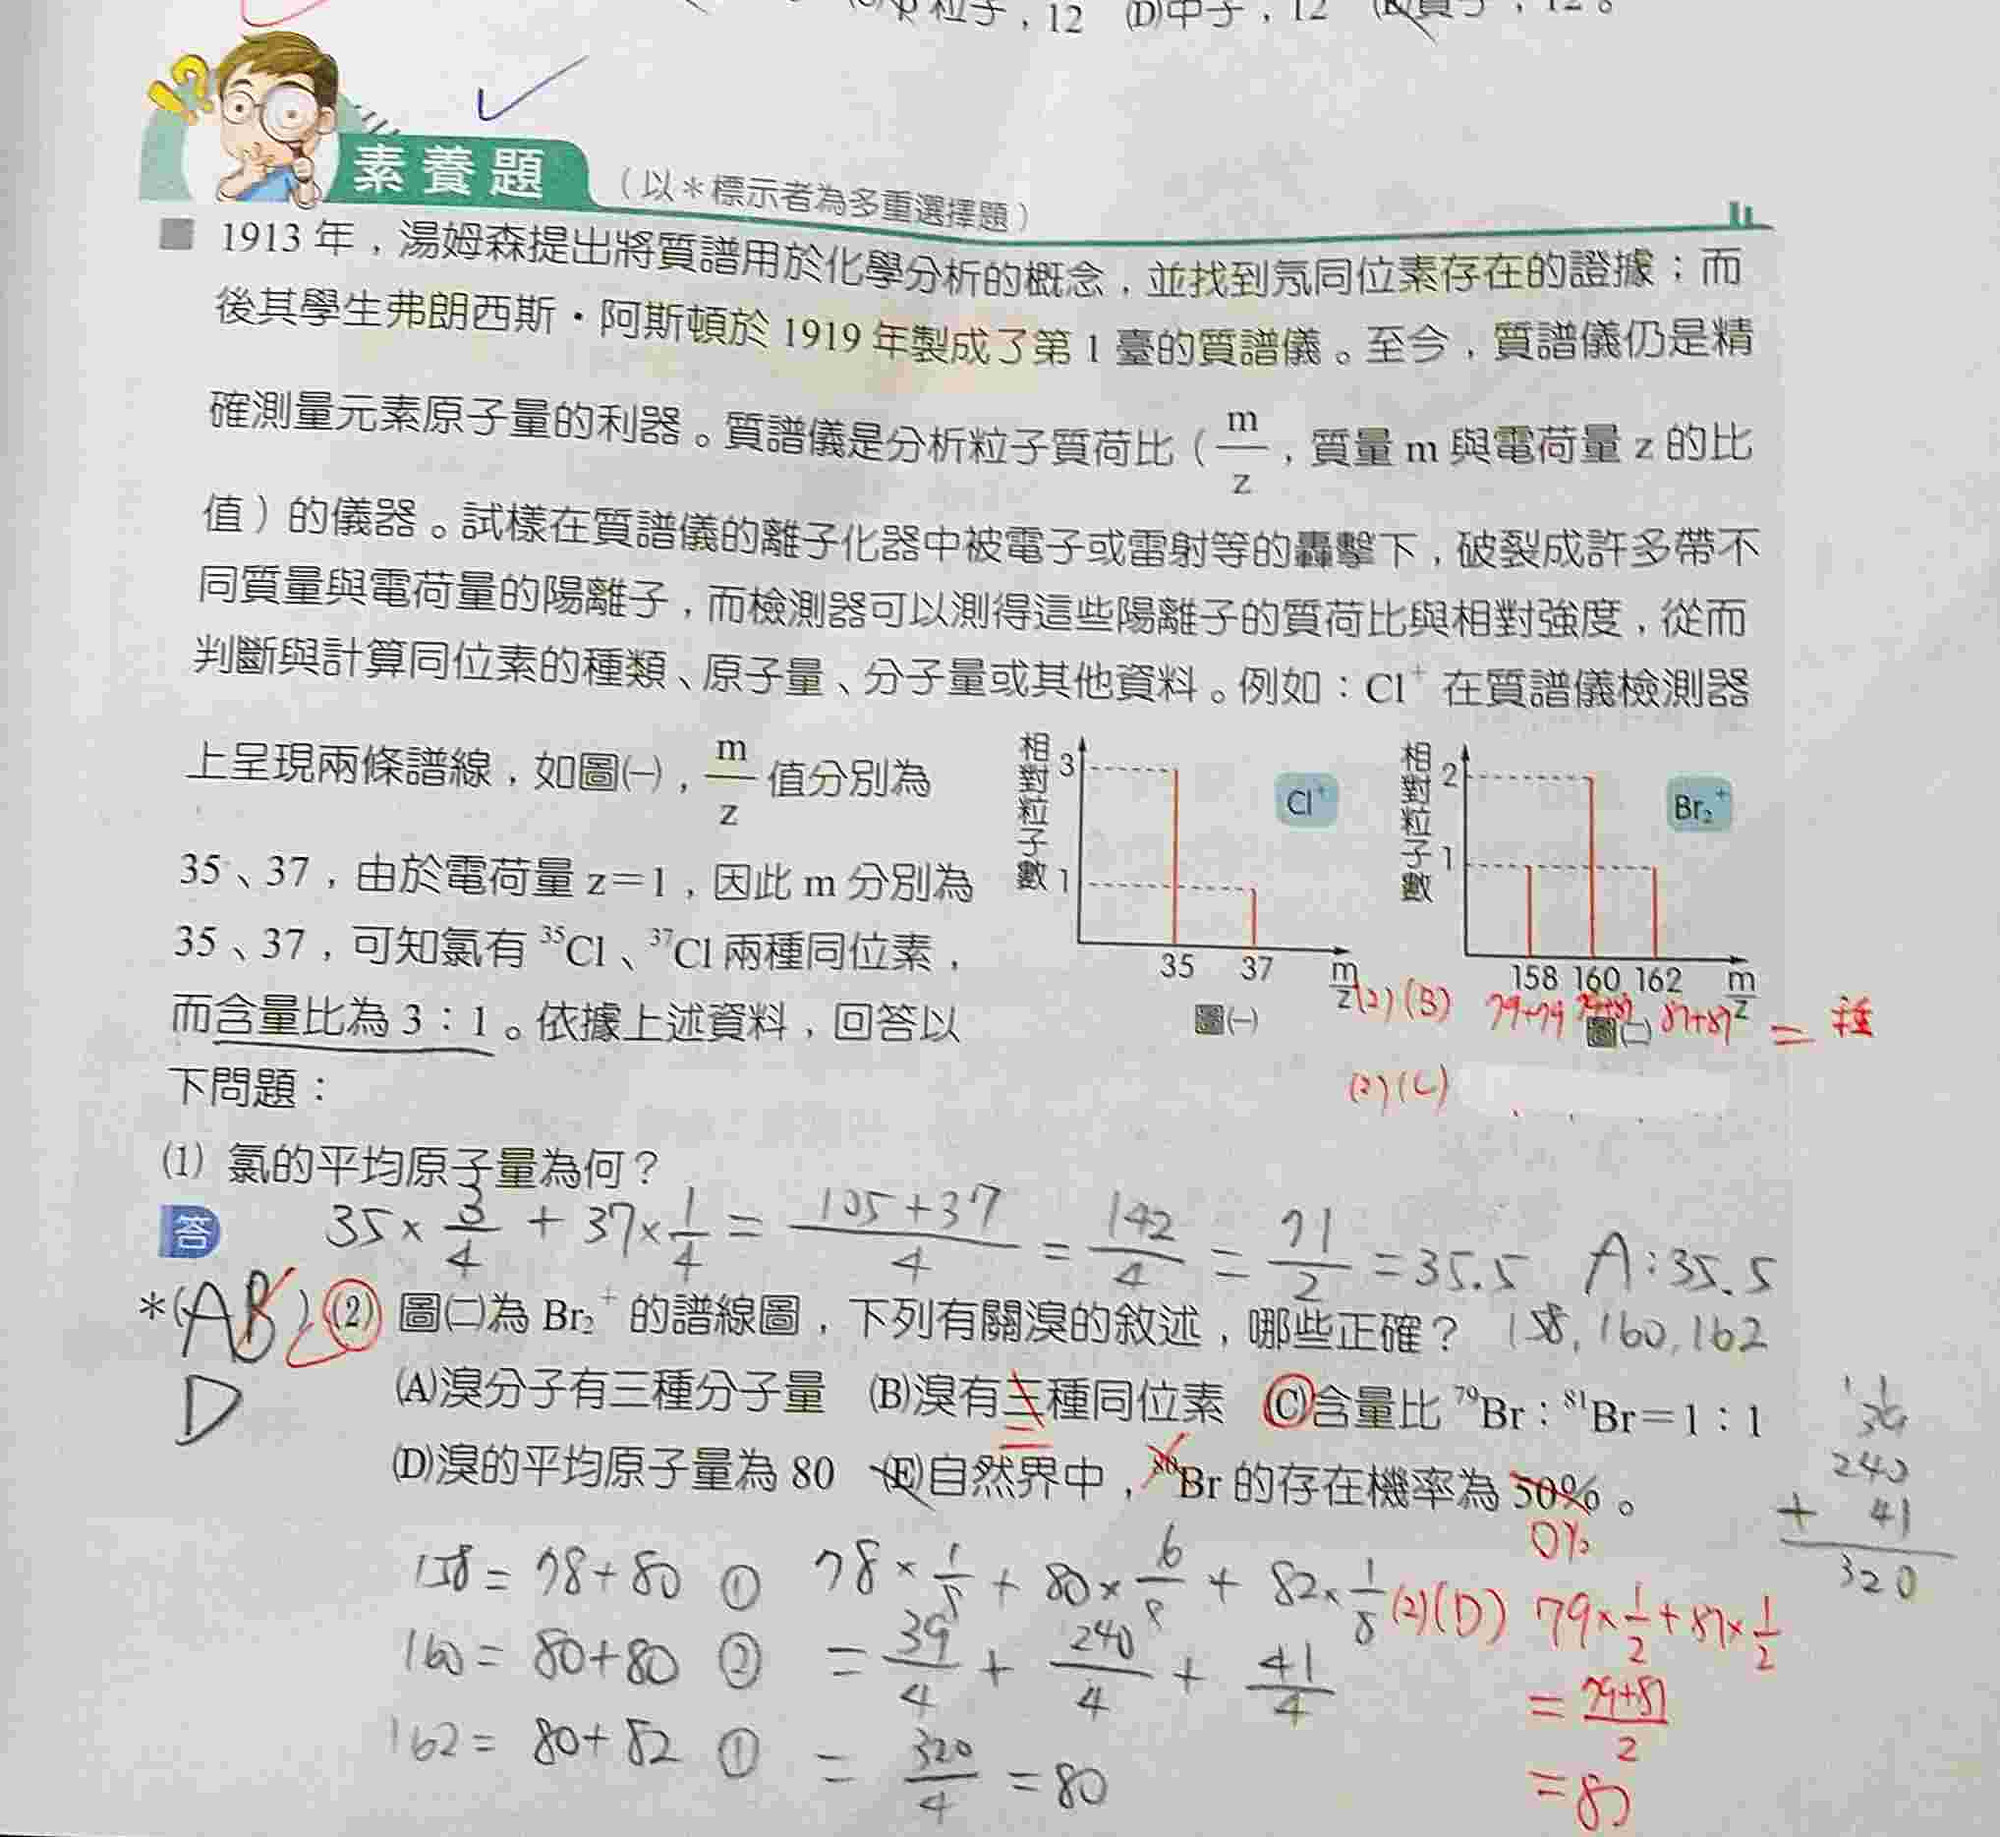 粒子，12 (D)中子，12
素養題 （以＊標示者為多重選擇題）
1913 年，湯姆森提出將質譜用於化學分析的概念，並找到氖同位素存在的證據；而
後其學生弗朗西斯・阿斯頓於 1919 年製成了第 1 臺的質譜儀。至今，質譜儀仍是精
確測量元素原子量的利器。質譜儀是分析粒子質荷比（m/z，質量 m 與電荷量 z 的比
值）的儀器。試樣在質譜儀的離子化器中被電子或雷射等的轟擊下，破裂成許多帶不
同質量與電荷量的陽離子，而檢測器可以測得這些陽離子的質荷比與相對強度，從而
判斷與計算同位素的種類、原子量、分子量或其他資料。例如：Cl⁺ 在質譜儀檢測器
上呈現兩條譜線，如圖㈠，m/z 值分別為
35、37，由於電荷量 z＝1，因此 m 分別為
35、37，可知氯有 ³⁵Cl、³⁷Cl 兩種同位素，
而含量比為 3：1。依據上述資料，回答以
下問題：
相對粒子數 3 1 Cl⁺
35 37 m/z
圖㈠
相對粒子數 2 1 Br₂⁺
158 160 162 m/z
圖㈡
(2)(B) 79+79 81+81 二種
(2)(C)
(1) 氯的平均原子量為何？
答 35×3/4 + 37×1/4 = 105+37/4 = 142/4 = 71/2 = 35.5 A:35.5
＊(AB D) (2) 圖㈡為 Br₂⁺ 的譜線圖，下列有關溴的敘述，哪些正確？ 158, 160, 162
(A)溴分子有三種分子量 (B)溴有三種同位素 (C)含量比 ⁷⁹Br：⁸¹Br＝1：1
二
(D)溴的平均原子量為 80 (E)自然界中，⁸⁰Br 的存在機率為 50%。
0%
39
240
+ 41
320
158 = 78+80 ① 78×1/8 + 80×6/8 + 82×1/8
160 = 80+80 ② = 39/4 + 240/4 + 41/4
162 = 80+82 ① = 320/4 = 80
(2)(D) 79×1/2+81×1/2
= 79+81/2
= 80